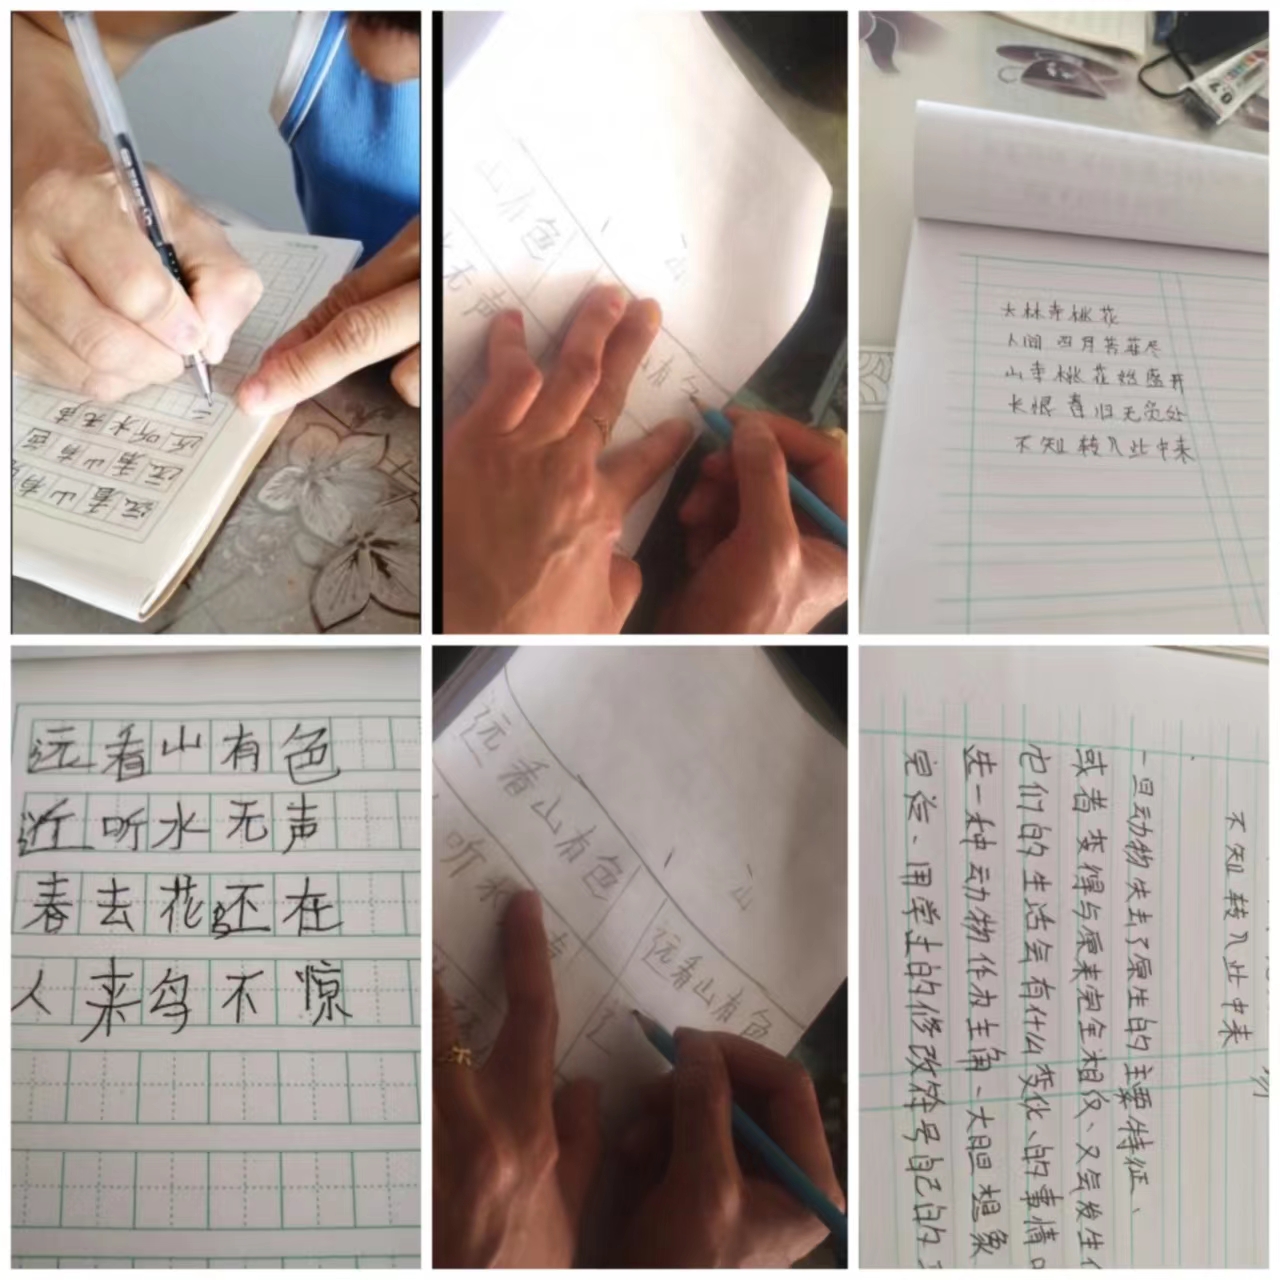 远看山有
远看山有色
近听水无声
二
山有色
水无声
山
山有
大林寺桃花
人间四月芳菲尽
山寺桃花始盛开
长恨春归无负处
不知转入此中来
0.7
远看山有色
近听水无声
春去花还在
人来鸟不惊
远看山有色
听水声
山
远看山有色
不知转入此中来
一旦动物失去了原生的主要特征、
或者变得与原来完全相仅、又会发生
它们的生活会有什么变化、的事情
选一种动物作为主角、大胆想象
完诠、用学生的修改符号自己的